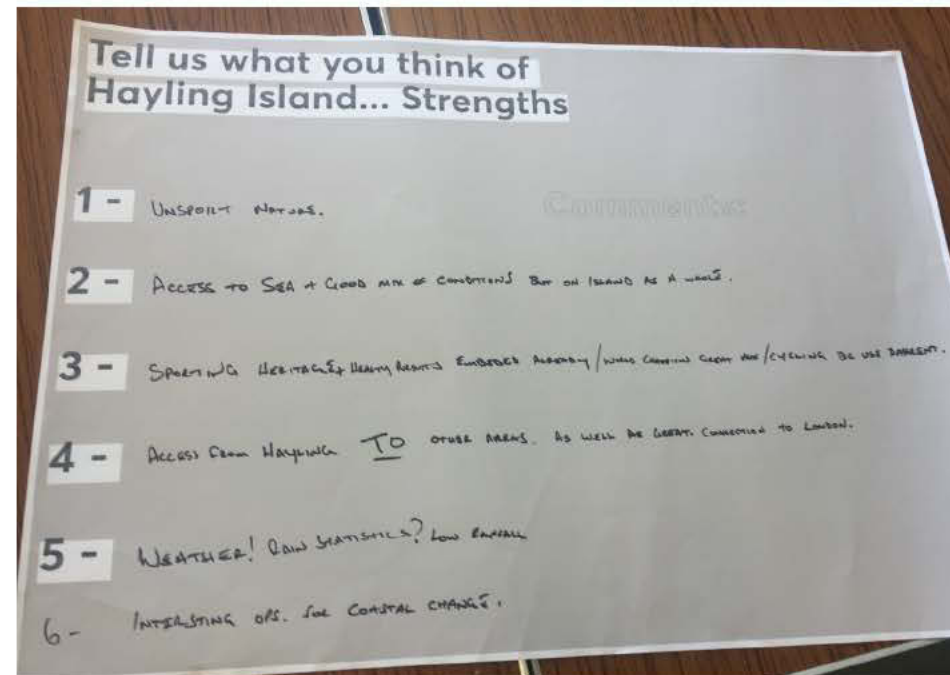 Tell us what you think of
Hayling Island... Strengths
Comments
1 - UNSPOILT NATURE.
2 - ACCESS TO SEA + GOOD MIX OF CONDITIONS BUT ON ISLAND AS A WHOLE.
3 - SPORTING HERITAGE + HEALTHY EMBEDDED ALREADY / CYCLING BE USE
4 - ACCESS FROM HAYLING TO OTHER AREAS. AS WELL AS GREAT CONNECTION TO LONDON.
5 - WEATHER! RAIN STATISTICS? LOW RAINFALL
6 - INTERESTING OPS. FOR COASTAL CHANGE.